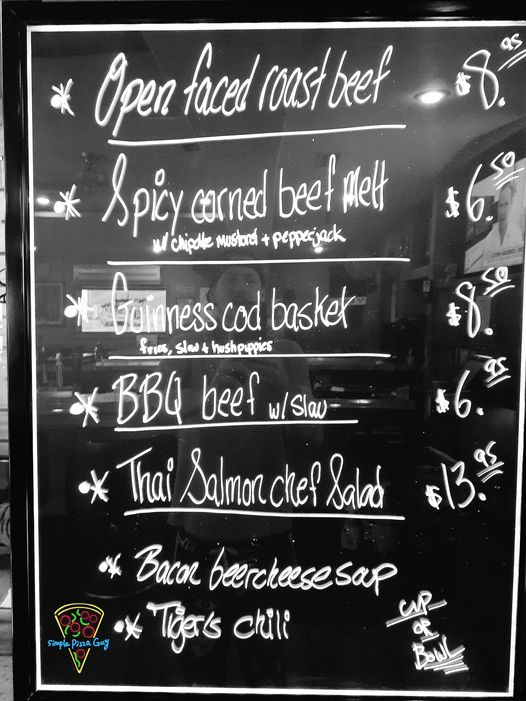 * Open faced roast beef $8.95
* Spicy corned beef Melt $6.50
w/ chipotle mustard + pepperjack
* Guinness cod basket $8.50
fries, slaw + hushpuppies
* BBQ beef w/ Slaw $6.95
* Thai Salmon chef Salad $13.95
* Bacon beercheese soup
* Tiger's chili
CUP
OR
BOWL
Simple Pizza Guy